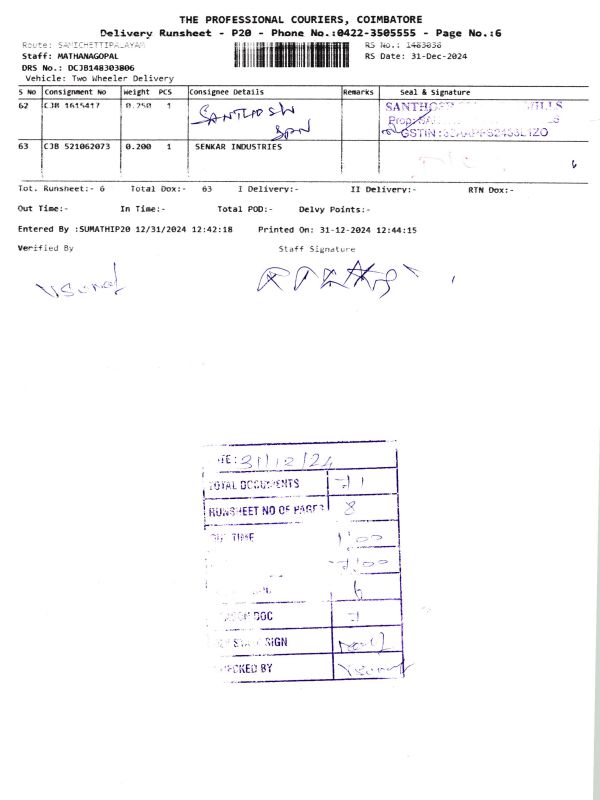 THE PROFESSIONAL COURIERS, COIMBATORE
Delivery Runsheet - P20 - Phone No.:0422-3505555 - Page No.:6
Route: SAMICHETTIPALAYAM
RS No.: 1483038
Staff: MATHANAGOPAL
RS Date: 31-Dec-2024
DRS No.: DCJB148303806
Vehicle: Two Wheeler Delivery
S No Consignment No Weight PCS Consignee Details Remarks Seal & Signature
62 CJB 1615417 0.250 1 SANTHOSH SANTHOS MILLS
Prop:
GSTIN:
63 CJB 521062073 0.200 1 SENKAR INDUSTRIES
6
Tot. Runsheet:- 6 Total Dox:- 63 I Delivery:- II Delivery:- RTN Dox:-
Out Time:- In Time:- Total POD:- Delvy Points:-
Entered By :SUMATHIP20 12/31/2024 12:42:18 Printed On: 31-12-2024 12:44:15
Verified By Staff Signature
TE: 31/12/24
TOTAL DOCUMENTS 71
RUNSHEET NO OF PAGES 8
TIME 1:00
7:00
6
DOC 7
SIGN
CKED BY